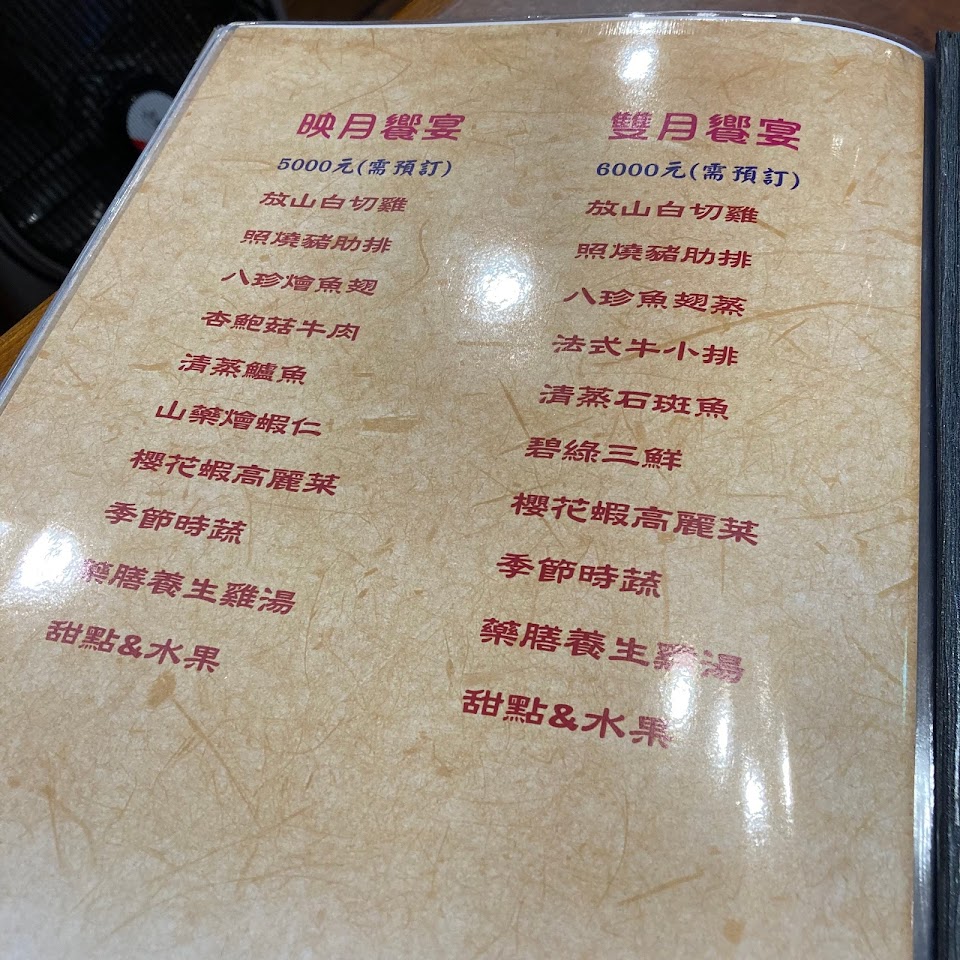 映月饗宴
5000元(需預訂)
放山白切雞
照燒豬肋排
八珍燴魚翅
杏鮑菇牛肉
清蒸鱸魚
山藥燴蝦仁
櫻花蝦高麗菜
季節時蔬
藥膳養生雞湯
甜點&水果
雙月饗宴
6000元(需預訂)
放山白切雞
照燒豬肋排
八珍魚翅蒸
法式牛小排
清蒸石斑魚
碧綠三鮮
櫻花蝦高麗菜
季節時蔬
藥膳養生雞湯
甜點&水果